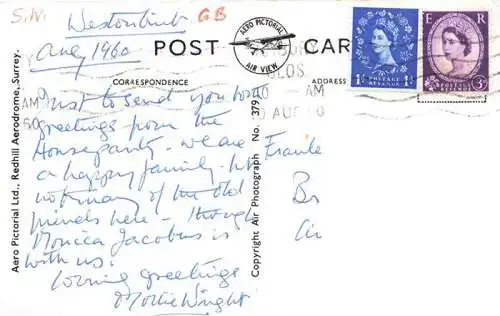 S.W.
GB
Aug 1960
POST CARD
AERO PICTORIAL
AIR VIEW
CORRESPONDENCE
ADDRESS
E R
POSTAGE REVENUE
1D 1D
3D
GLOS
AM
AUG
Just to send you
greetings from the
Houseparty. We are
a happy family. 
not many of the old
friends here - though
Monica Jacobus is
with us.
Loving greetings
Mollie Wright
Br
Aero Pictorial Ltd., Redhill Aerodrome, Surrey.
Copyright Air Photograph No. 379